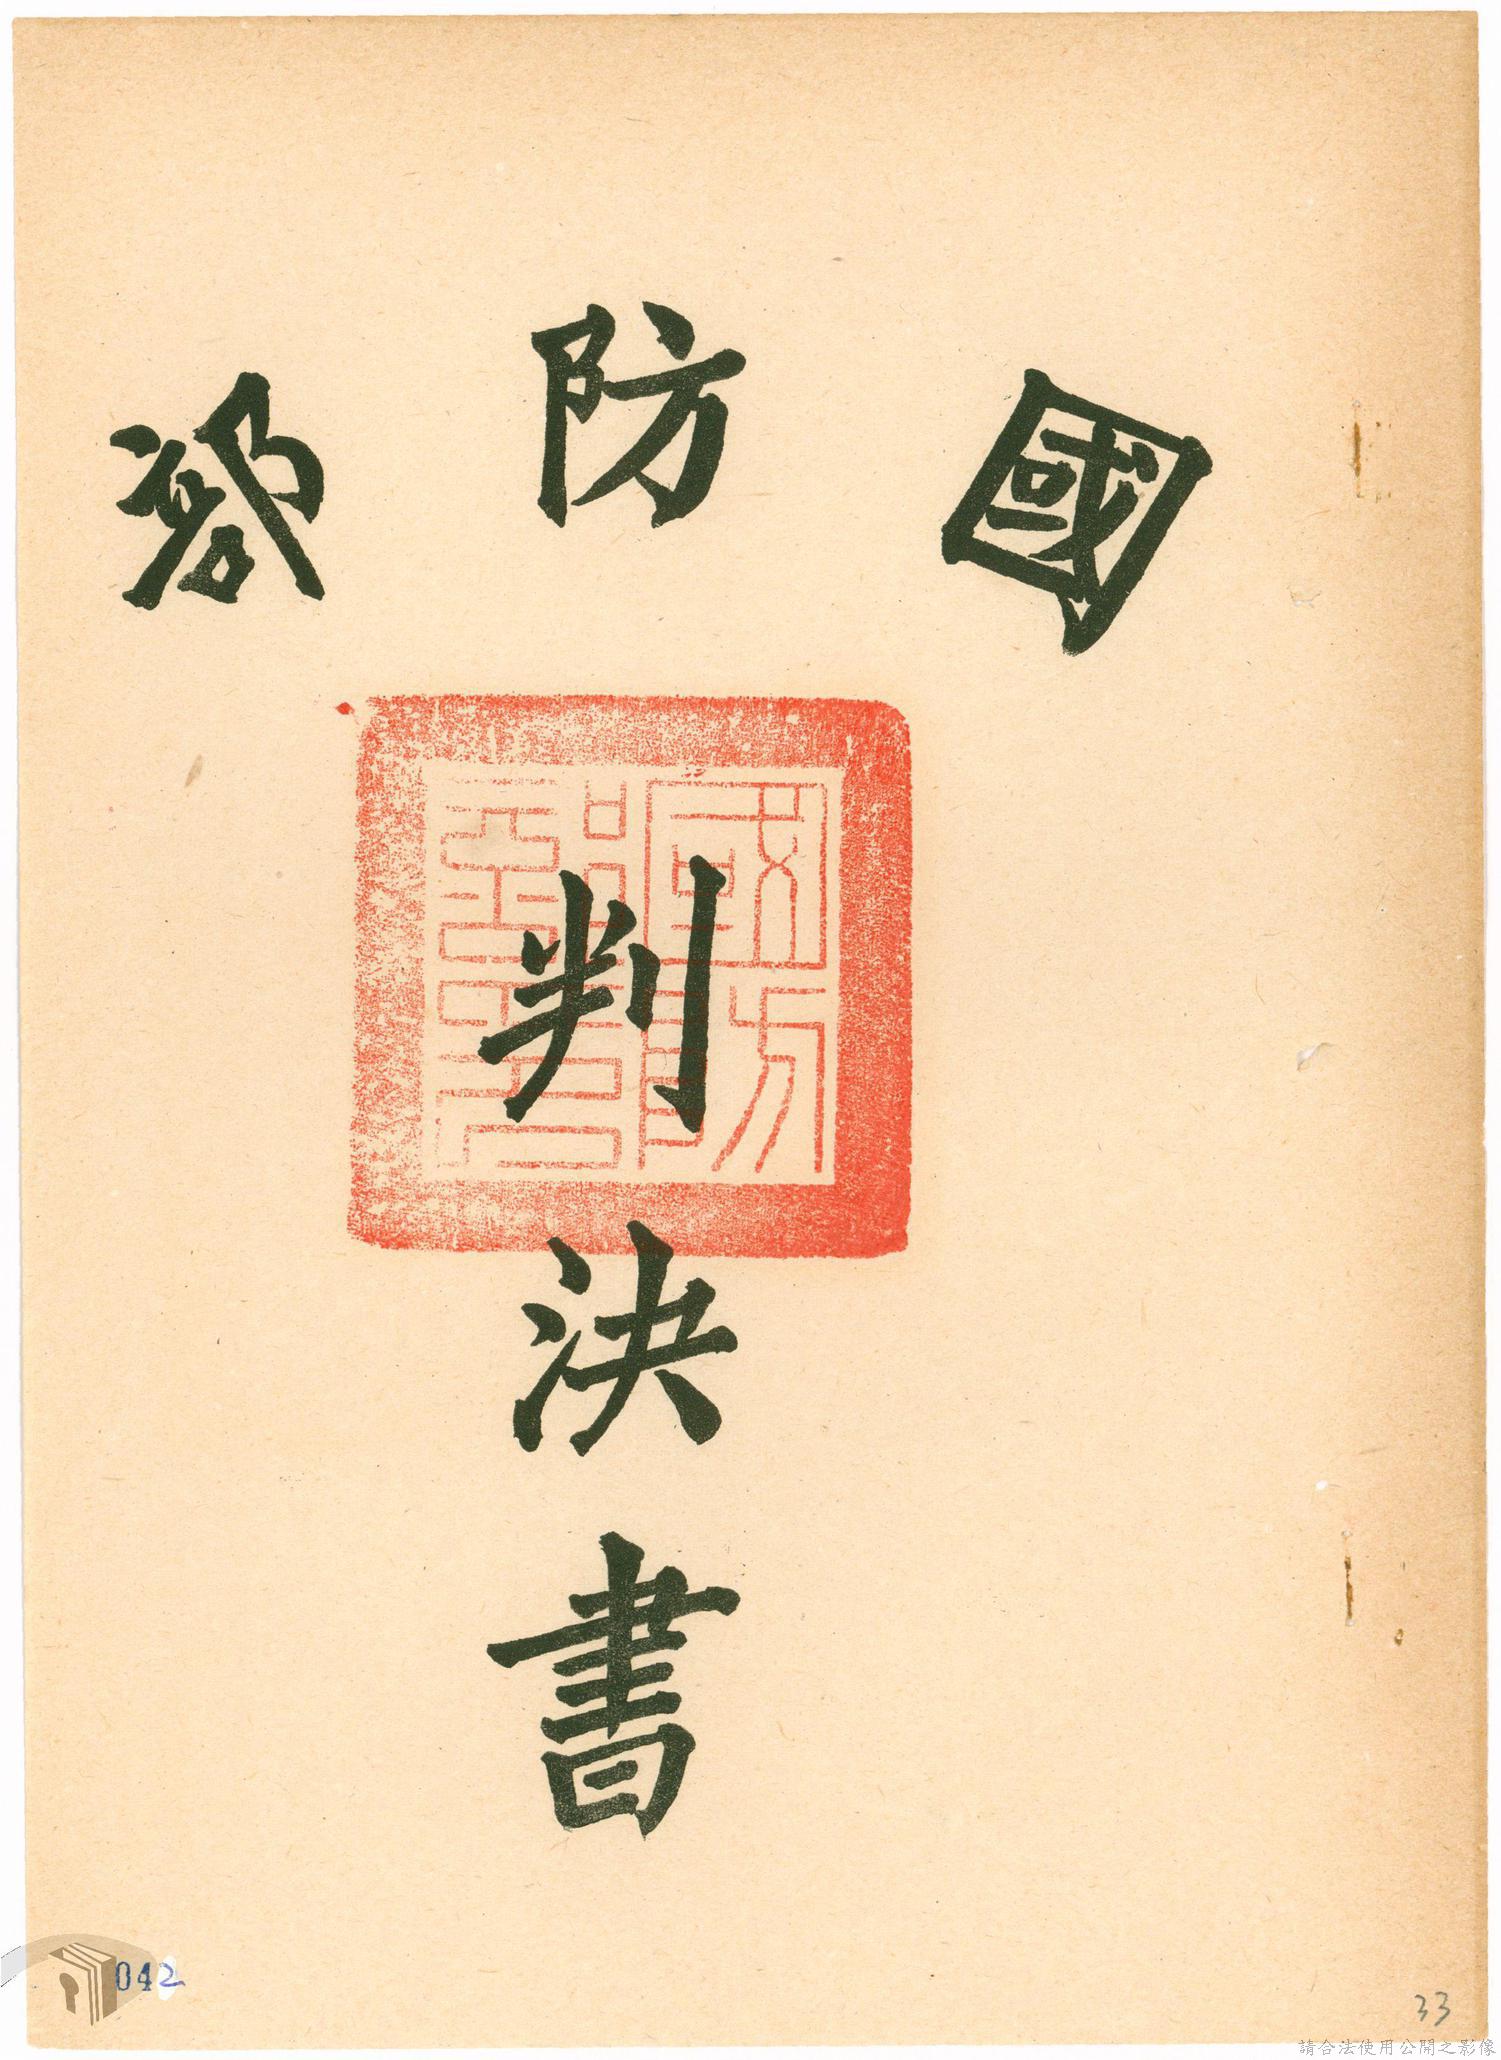 國防部
判決書
042
33
請合法使用公開之影像